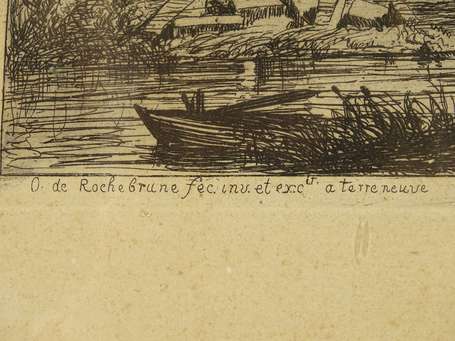 O. de Rochebrune fec. inv. et exc^tr a terreneuve